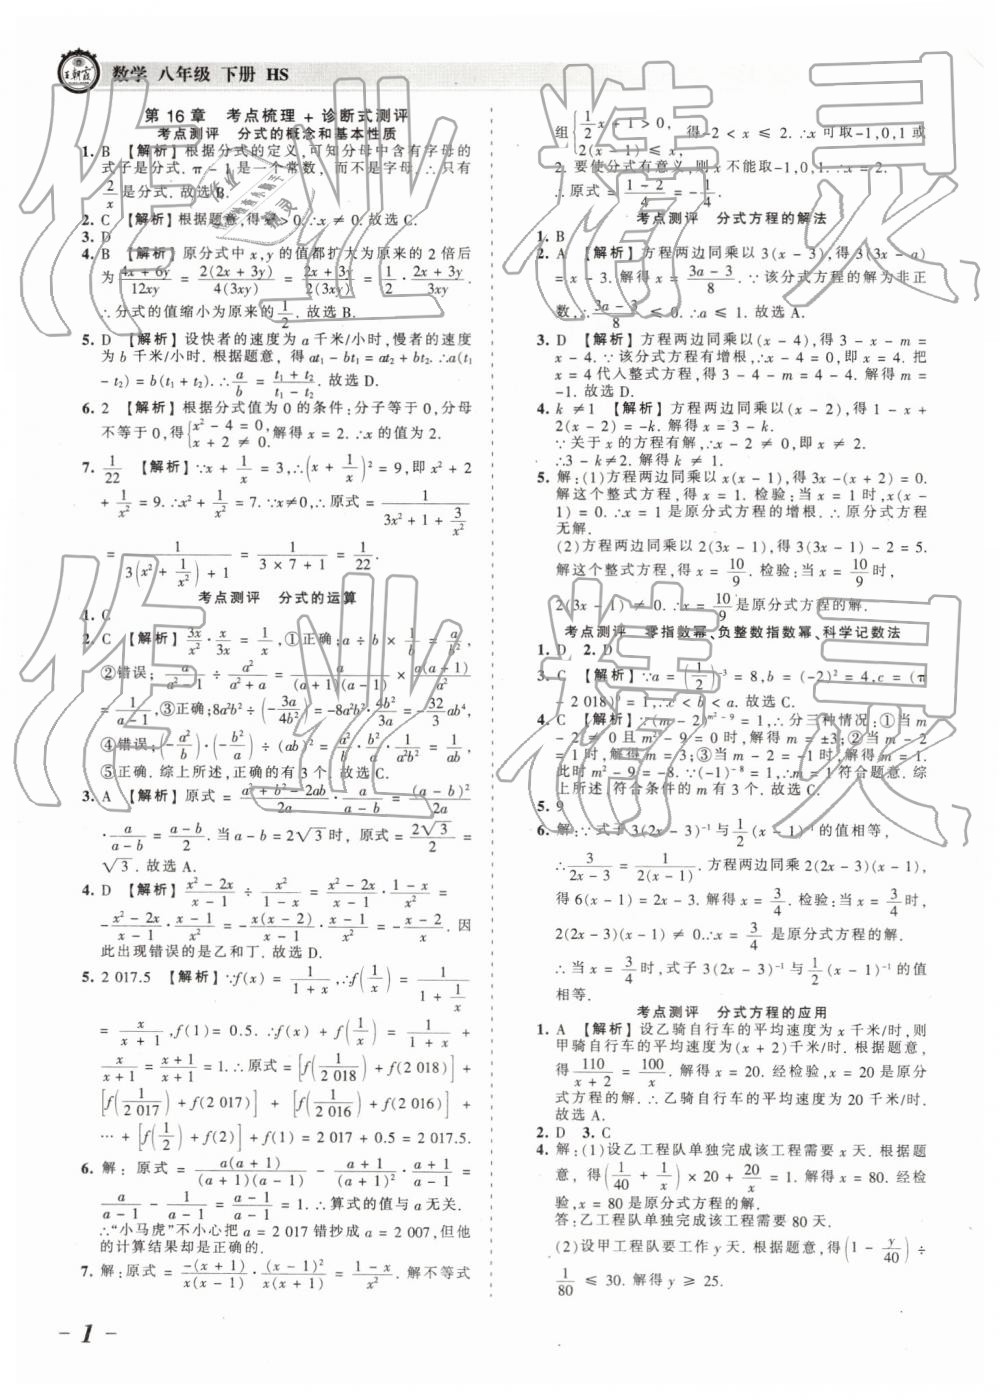 王朝霞
数学 八年级 下册 HS
第 16 章 考点梳理 + 诊断式测评
考点测评 分式的概念和基本性质
1. B 【解析】根据分式的定义,可知分母中含有字母的
式子是分式. π - 1 是一个常数, 而不是字母. ∴ 只有
2/x 是分式. 故选 B.
2. C 【解析】根据题意,得 x² > 0. ∴ x ≠ 0. 故选 C.
3. D
4. B 【解析】原分式中 x, y 的值都扩大为原来的 2 倍后
为 (4x + 6y)/(12xy) = 2(2x + 3y)/(4(3xy)) = (2x + 3y)/(2 · 3xy) = 1/2 · (2x + 3y)/(3xy).
∴ 分式的值缩小为原来的 1/2. 故选 B.
5. D 【解析】设快者的速度为 a 千米/小时,慢者的速度
为 b 千米/小时. 根据题意, 得 at₁ - bt₁ = at₂ + bt₂. ∴ a(t₁
- t₂) = b(t₁ + t₂). ∴ a/b = (t₁ + t₂)/(t₁ - t₂). 故选 D.
6. 2 【解析】根据分式值为 0 的条件:分子等于 0,分母
不等于 0,得 { x² - 4 = 0, x + 2 ≠ 0. 解得 x = 2. ∴ x 的值为 2.
7. 1/22 【解析】∵ x + 1/x = 3, ∴ (x + 1/x)² = 9, 即 x² + 2
+ 1/x² = 9. ∴ x² + 1/x² = 7. ∵ x ≠ 0, ∴ 原式 = 1/(3x² + 1 + 3/x²)
= 1/(3(x² + 1/x²) + 1) = 1/(3 × 7 + 1) = 1/22.
考点测评 分式的运算
1. C
2. C 【解析】3x/x² · x/3x = 1/x, ①正确; a ÷ b × 1/b = a/b²,
②错误; a/(a² - 1) ÷ a²/(a² + a) = a/((a + 1)(a - 1)) × a(a + 1)/a² =
1/(a - 1), ③正确; 8a²b² ÷ (-3a/4b²) = -8a²b² · 4b²/3a = -32/3 ab⁴,
④错误; (-a²/b) · (-b²/a) ÷ (ab)² = a²/b · b²/a · 1/a²b² = 1/ab,
⑤正确. 综上所述,正确的有 3 个. 故选 C.
3. A 【解析】原式 = (a² + b² - 2ab)/2a · a/(a - b) = (a - b)²/2a
· a/(a - b) = (a - b)/2. 当 a - b = 2√3 时, 原式 = 2√3/2 =
√3. 故选 A.
4. D 【解析】(x² - 2x)/(x - 1) ÷ x²/(1 - x) = (x² - 2x)/(x - 1) · (1 - x)/x² =
-(x² - 2x)/(x - 1) · (x - 1)/x² = -x(x - 2)/(x - 1) · (x - 1)/x² = -(x - 2)/x. 因
此出现错误的是乙和丁. 故选 D.
5. 2 017.5 【解析】∵ f(x) = 1/(1 + x), ∴ f(1/x) = 1/(1 + 1/x)
= x/(x + 1), f(1) = 0.5. ∴ f(x) + f(1/x) = 1/(x + 1) +
x/(x + 1) = (x + 1)/(x + 1) = 1. ∴ 原式 = [f(1/2 018) + f(2 018)] +
[f(1/2 017) + f(2 017)] + [f(1/2 016) + f(2 016)] +
… + [f(1/2) + f(2)] + f(1) = 2 017 + 0.5 = 2 017.5.
6. 解: 原式 = a(a + 1)/((a + 1)(a - 1)) - (a + 1)/(a + 1)² · (a + 1)/(a - 1) =
a/(a - 1) - 1/(a - 1) = (a - 1)/(a - 1) = 1. ∴ 算式的值与 a 无关.
∴“小马虎”不小心把 a = 2 017 错抄成 a = 2 007, 但他
的计算结果却是正确的.
7. 解:原式 = -(x + 1)/(x(x - 1)) · (x - 1)²/(x(x + 1)) = (1 - x)/x². 解不等式
组 { 1/2 x + 1 > 0, 2(x - 1) ≤ x, 得 -2 < x ≤ 2. ∴ x 可取 -1,0,1 或
2. 要使分式有意义,则 x 不能取 -1,0,1. ∴ x = 2.
∴ 原式 = (1 - 2)/4 = -1/4.
考点测评 分式方程的解法
1. B
2. A 【解析】方程两边同乘以 3(x - 3),得 3(3x - a)
= x - 3. 解得 x = (3a - 3)/8. ∵ 该分式方程的解为非正
数, ∴ (3a - 3)/8 ≤ 0. ∴ a ≤ 1. 故选 A.
3. D 【解析】方程两边同乘以 (x - 4), 得 3 - x - m =
x - 4. ∵ 该分式方程有增根, ∴ x - 4 = 0, 即 x = 4. 把
x = 4 代入整式方程,得 3 - 4 - m = 4 - 4. 解得 m =
-1. 故选 D.
4. k ≠1 【解析】方程两边同乘以 (x - 2), 得 1 +
2(x - 2) = -k. 解得 x = 3 - k.
∵ 关于 x 的方程有解, ∴ x - 2 ≠ 0, 即 x ≠ 2.
∴ 3 - k≠2. 解得 k ≠ 1.
5. 解:(1)方程两边同乘以 x(x - 1), 得 3x - (x + 2) = 0.
解这个整式方程,得 x = 1. 检验:当 x = 1 时, x(x -
1) = 0. ∴ x = 1 是原分式方程的增根. ∴ 原分式方程
无解.
(2)方程两边同乘以 2(3x - 1), 得 3(3x - 1) - 2 = 5.
解这个整式方程,得 x = 10/9. 检验:当 x = 10/9 时,
2(3x - 1) ≠ 0. ∴ x = 10/9 是原分式方程的解.
考点测评 零指数幂、负整数指数幂、科学记数法
1. D 2. D
3. C 【解析】∵ a = (1/2)⁻³ = 8, b = (-2)² = 4, c = (π
- 2 018)⁰ = 1, ∴ c < b < a. 故选 C.
4. C 【解析】∵ (m - 2)^(m² - 9) = 1, ∴ 分三种情况:①当 m
- 2 ≠ 0 且 m² - 9 = 0 时,解得 m = ±3;②当 m - 2
= 1 时,解得 m = 3;③当 m - 2 = -1 时,解得 m = 1.
此时 m² - 9 = -8. ∵ (-1)⁻⁸ = 1, ∴ m = 1 符合题意. 综
上所述,符合条件的 m 有 3 个. 故选 C.
5. 9
6. 解:∵ 式子 3(2x - 3)⁻¹ 与 1/2 (x - 1)⁻¹ 的值相等,
∴ 3/(2x - 3) = 1/(2(x - 1)). 方程两边同乘 2(2x - 3)(x - 1),
得 6(x - 1) = 2x - 3. 解得 x = 3/4. 检验:当 x = 3/4 时,
2(2x - 3)(x - 1) ≠ 0. ∴ x = 3/4 是原分式方程的解.
∴ 当 x = 3/4 时,式子 3(2x - 3)⁻¹ 与 1/2 (x - 1)⁻¹ 的值
相等.
考点测评 分式方程的应用
1. A 【解析】设乙骑自行车的平均速度为 x 千米/时,则
甲骑自行车的平均速度为 (x + 2)千米/时. 根据题意,
得 110/(x + 2) = 100/x. 解得 x = 20. 经检验, x = 20 是原分
式方程的解. ∴ 乙骑自行车的平均速度为 20 千米/时.
故选 A.
2. D 3. C
4. 解:(1)设乙工程队单独完成该工程需要 x 天. 根据题
意, 得 (1/40 + 1/x) × 20 + 20/x = 1. 解得 x = 80. 经检
验, x = 80 是原分式方程的解.
答:乙工程队单独完成该工程需要 80 天.
(2)设甲工程队要工作 y 天. 根据题意,得 (1 - y/40) ÷
1/80 ≤ 30. 解得 y ≥ 25.
- 1 -
作业精灵
作业精灵